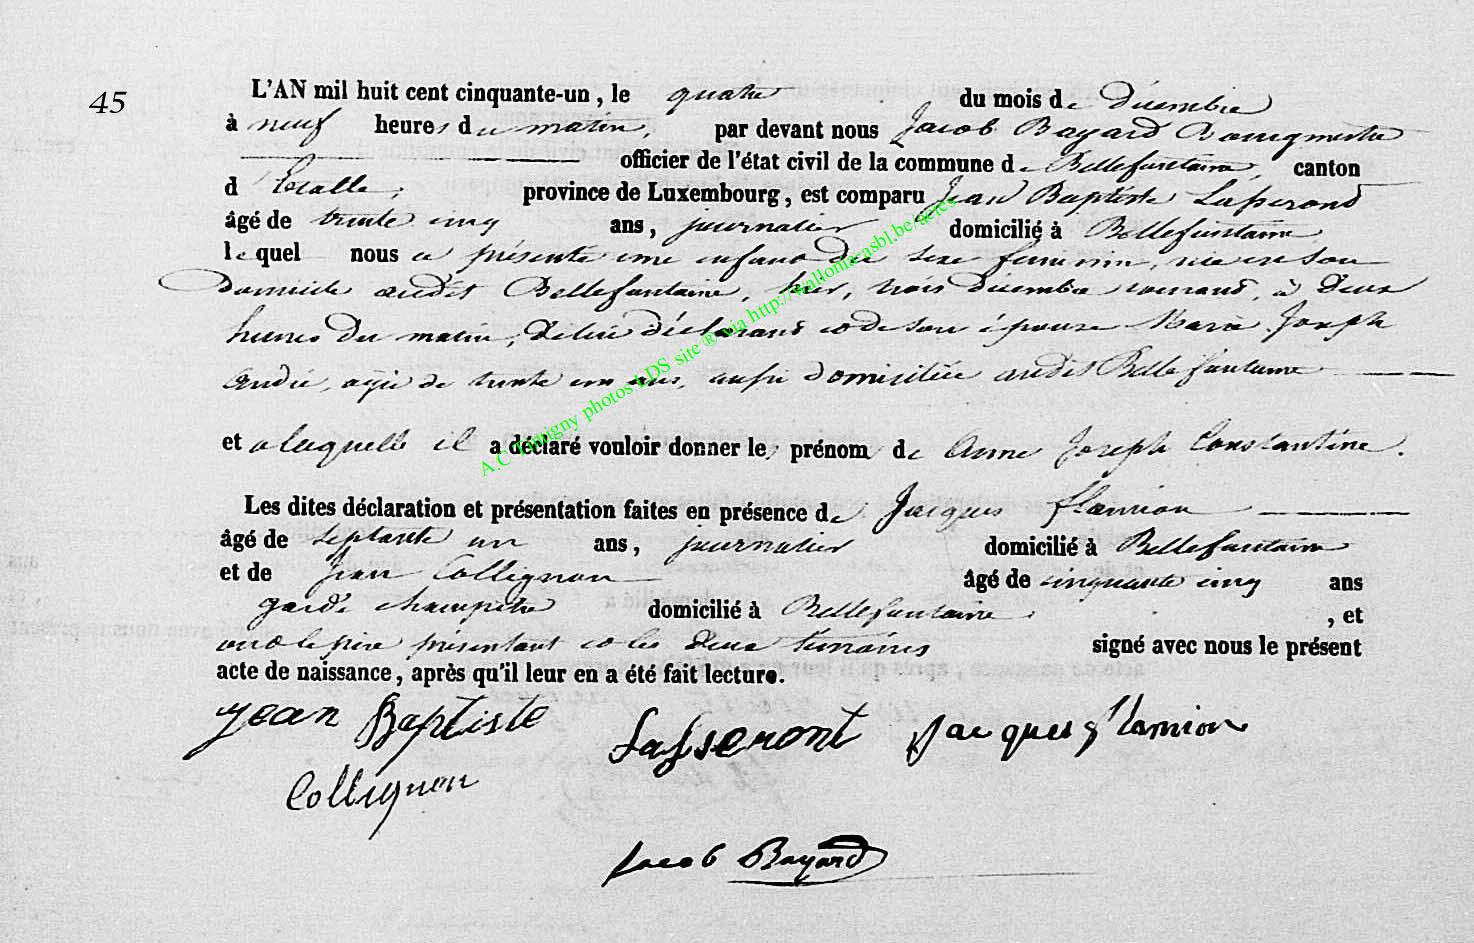 45
L'AN mil huit cent cinquante-un, le quatre du mois de Décembre
à neuf heures du matin, par devant nous Jacob Bayard Bourgmestre
officier de l'état civil de la commune de Bellefontaine, canton
d'Etalle, province de Luxembourg, est comparu Jean Baptiste Lasseront
âgé de trente cinq ans, journalier domicilié à Bellefontaine
lequel nous a présenté une enfant du sexe feminin, née en son
domicile audit Bellefontaine, hier, trois Décembre courant, à deux
heures du matin, de lui déclarant et de son épouse Marie Joseph
André, agée de trente un ans, aussi domiciliée audit Bellefontaine
et a laquelle il a déclaré vouloir donner les prénom de Anne Joseph Constantine.
Les dites déclaration et présentation faites en présence de Jacques Flamion
âgé de septante un ans, journalier domicilié à Bellefontaine
et de Jean Collignon âgé de cinquante cinq ans
garde champêtre domicilié à Bellefontaine, et
ont le père présentant et les deux témoins signé avec nous le présent
acte de naissance, après qu'il leur en a été fait lecture.
Jean Baptiste Lasseront Jacques Flamion
Collignon
Jacob Bayard
A.C. Tintigny photos LDS site ® via http://wallonia-asbl.be/actes